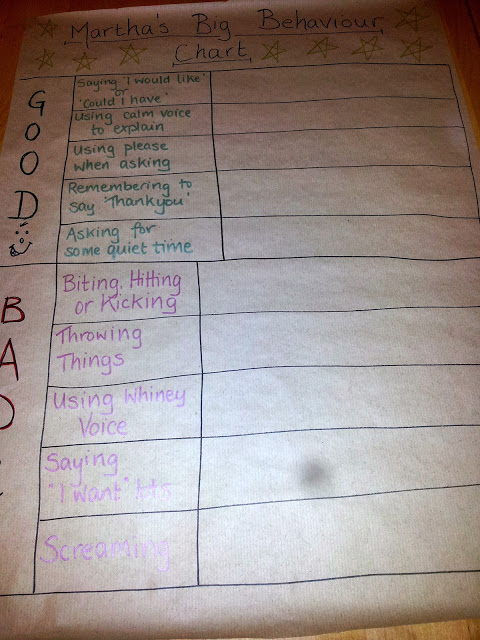 Martha's Big Behaviour
Chart
GOOD
Saying 'I would like'
or
'Could i have'
Using calm voice
to explain
Using please
when asking
Remembering to
say 'Thankyou'
Asking for
some quiet time
BAD
Biting, Hitting
or Kicking
Throwing
Things
Using Whiney
Voice
Saying
"I want"
Screaming